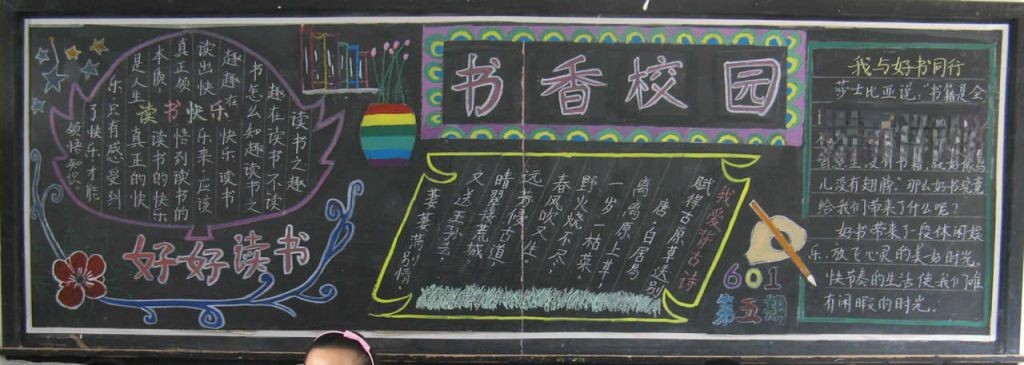 书香校园
读书之趣
趣在读书,不读
书怎么知趣,读书之
趣,趣在快乐。读书
读出快乐来,应该
真正领悟到读书的
本质,读书的快乐
是人生真正的快
乐,只有感受到
了快乐,才能
领悟知识。
读书快乐
好好读书
我爱背古诗
赋得古原草送别
唐·白居易
离离原上草,
一岁一枯荣。
野火烧不尽,
春风吹又生。
远芳侵古道,
晴翠接荒城。
又送王孙去,
萋萋满别情。
601
第五期
我与好书同行
莎士比亚说:“书籍是全
没有书籍,就好像鸟
儿没有翅膀。”那么好书究竟
给我们带来了什么呢?
好书带来了一段休闲娱
乐、放飞心灵的美好时光。
快节奏的生活使我们难
有闲暇的时光。